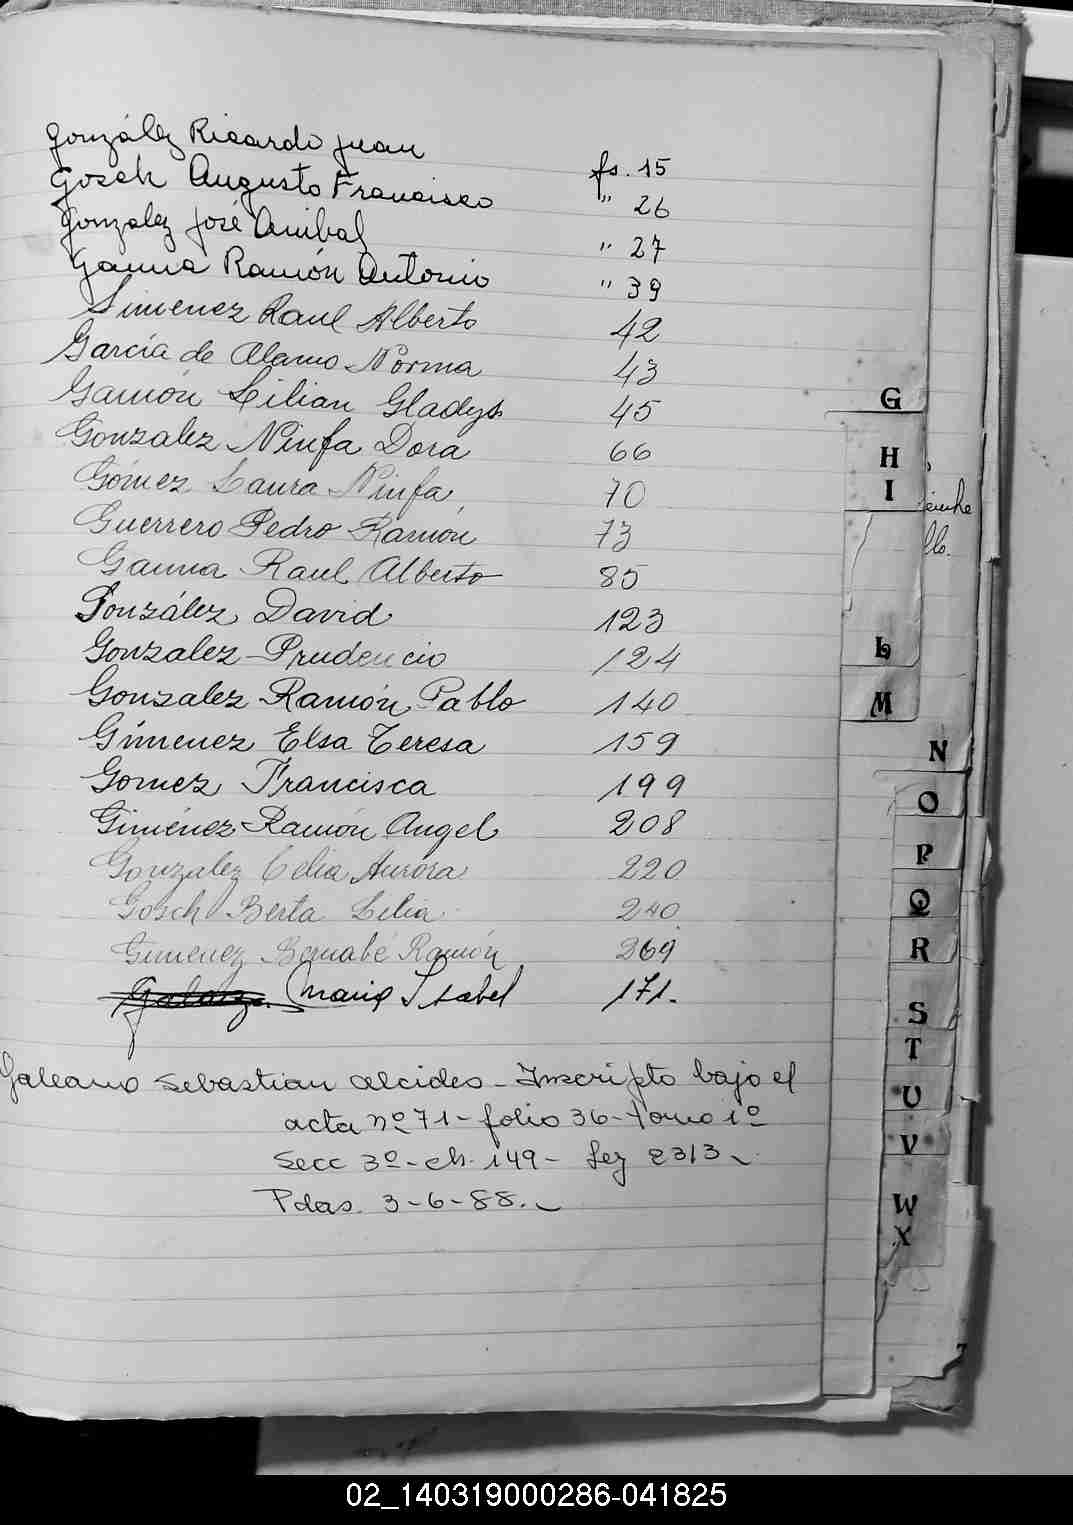 González Ricardo Juan fs. 15
Gosch Augusto Francisco " 26
González José Anibal " 27
Gauna Ramón Antonio " 39
Gimenez Raul Alberto 42
García de Alamo Norma 43
Gamón Lilian Gladys 45
Gonzalez Ninfa Dora 66
Gómez Laura Ninfa 70
Guerrero Pedro Ramón 73
Gauna Raul Alberto 85
González David 123
Gonzalez Prudencio 124
Gonzalez Ramón Pablo 140
Gimenez Elsa Teresa 159
Gomez Francisca 199
Giménez Ramón Angel 208
Gonzalez Celia Aurora 220
Gosch Berta Lilia 240
Gimenez Bernabé Ramón 269
María Isabel 171.
Galeano Sebastian Alcides - Inscripto bajo el
acta nº 71 - folio 36 - tomo 1º
Secc 3º - ch. 149 - Ley 2313
Pdas. 3-6-88.
G
H
I
L
M
N
O
P
Q
R
S
T
U
V
W
X
02_140319000286-041825